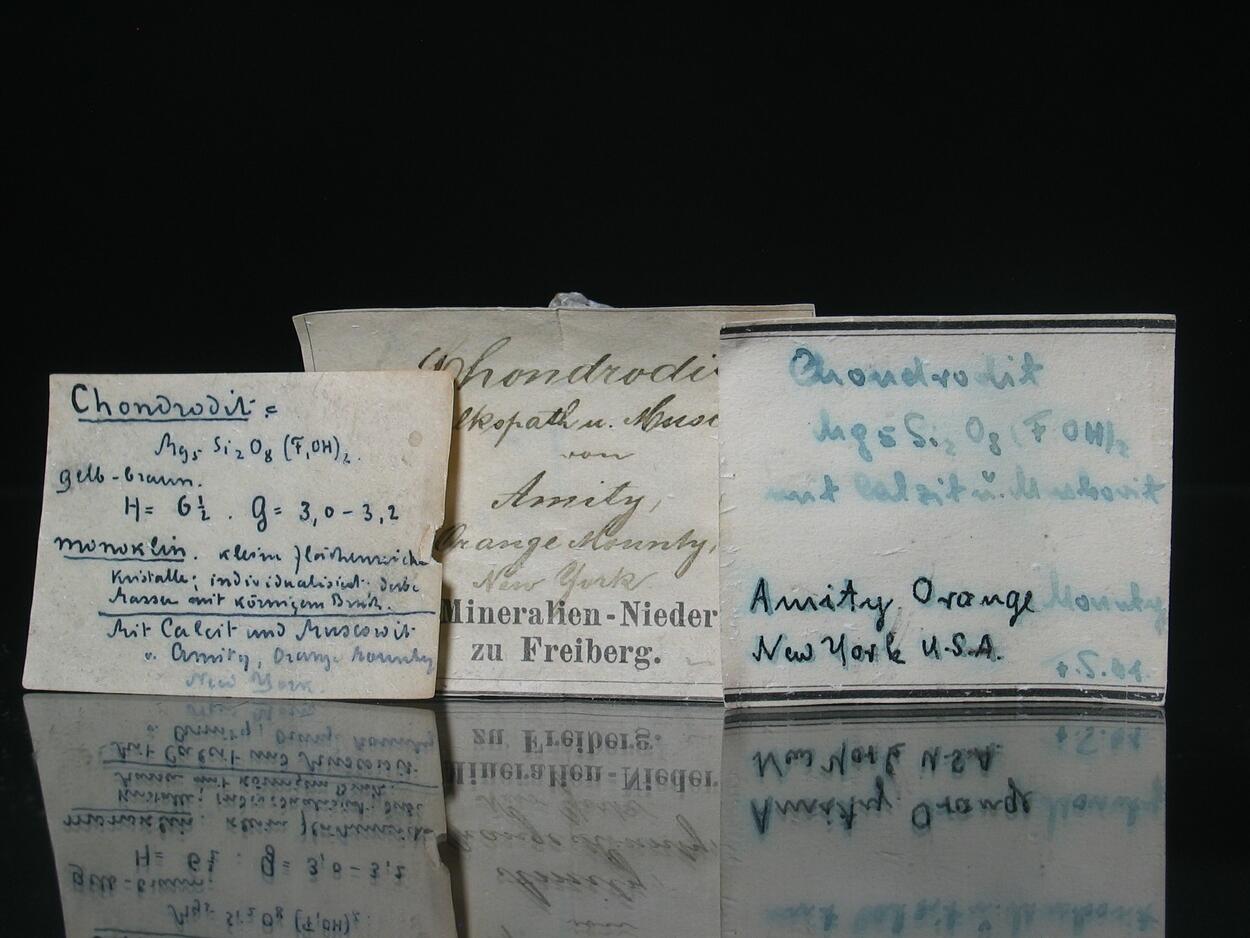 Chondrodit =
Mg5 Si2 O8 (F,OH)2.
gelb-braun.
H= 6½ . G= 3,0-3,2
monoklin. kleine flächenreiche
Kristalle; individualisiert. derbe
Massen mit körnigem Bruch.
Mit Calcit und Muscowit
v. Amity, Orange Kounty
New York.
Chondrodi
lkspath u. Musc
von
Amity,
Orange Kounty,
New York
Mineralien-Nieder
zu Freiberg.
Chondrodit
Mg5 Si2 O8 (F OH)2
mit Calzit u. Muskovit
Amity Orange Kounty
New York U.S.A.